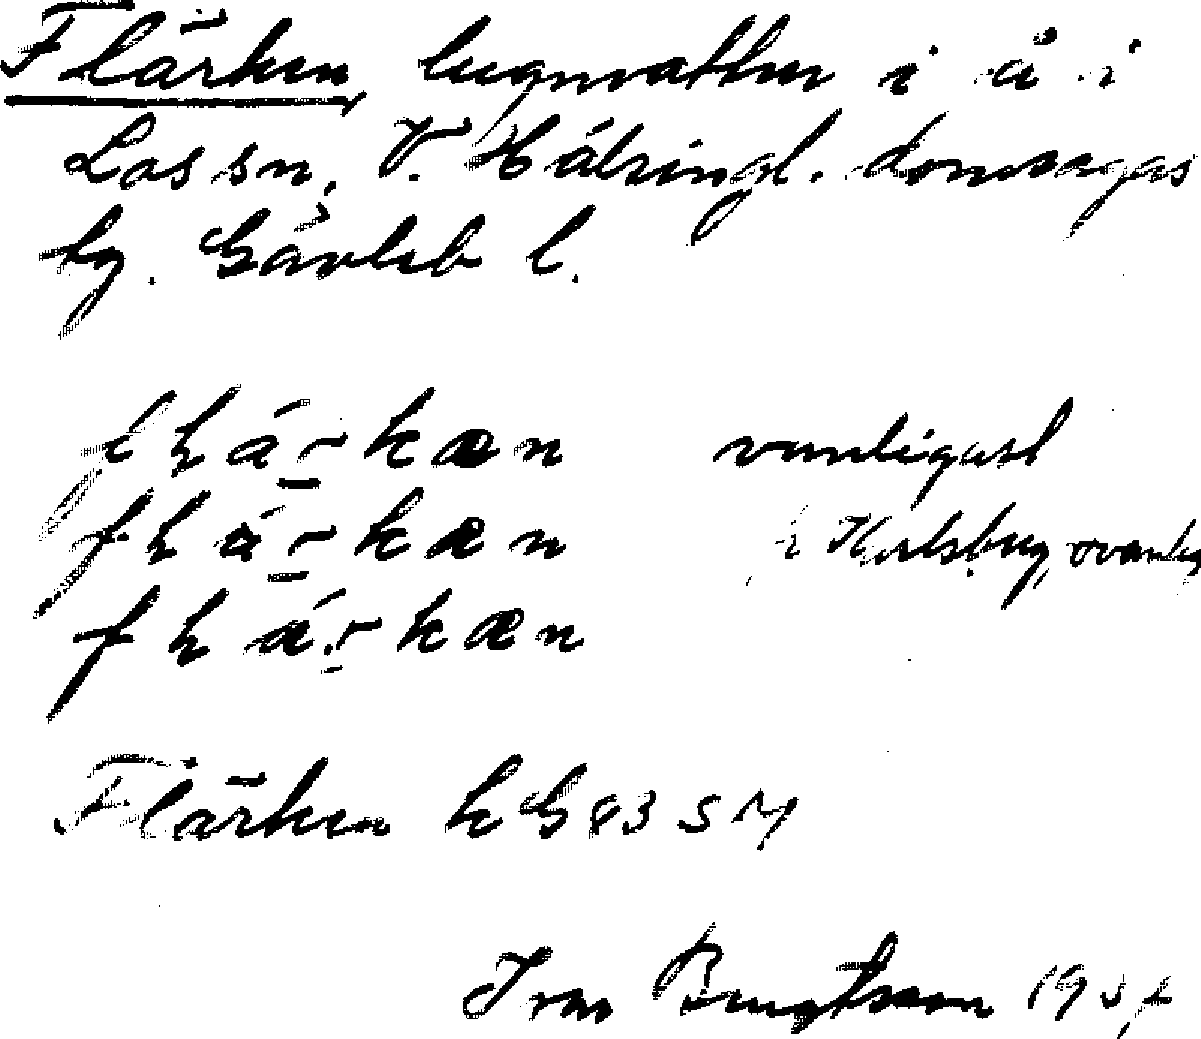 Flärken, lugnvatten i å i
Los sn, V. Hälsingl. domsagas
tg. Gävleb l.
flä́rkæn vanligast
flä́rkæn Karlsberg, ovanlig
flä́rkæn
Flärken k G 83 SM
Ivar Bengtsson